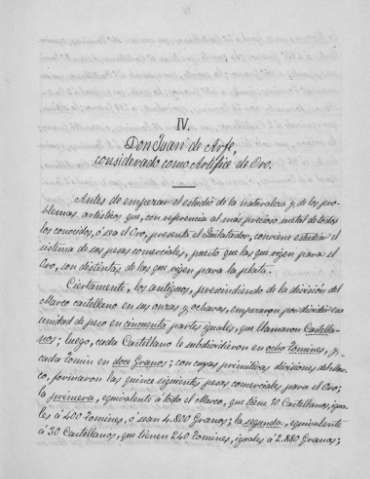 IV.
Don Juan de Arfe,
considerado como Artífice de Oro.
Antes de empezar el estudio de la naturaleza y de los pro-
blemas artísticos que, con referencia al más precioso metal de todos
los conocidos, ó sea el Oro, presenta el Quilatador, conviene estudiar el
sistema de sus pesas comerciales, puesto que las que rigen para el
Oro, son distintas de las que rijen para la plata.
Ciertamente, los antiguos, prescindiendo de la división del
Marco castellano en sus onzas y ochavas, empezaron por dividir esa
unidad de peso en cincuenta partes iguales, que llamaron Castella-
nos; luego, cada Castellano le subdividieron en ocho Tomines, y
cada Tomin en doce Granos; con cuyas primitivas divisiones del Mar-
co, formaron las quince siguientes pesas comerciales para el Oro;
la primera, equivalente á todo el Marco, que tiene 50 Castellanos, igua-
les á 400 Tomines, ó sean 4.800 Granos; la segunda, equivalente
á 30 Castellanos, que tienen 240 Tomines, iguales á 2.880 Granos;